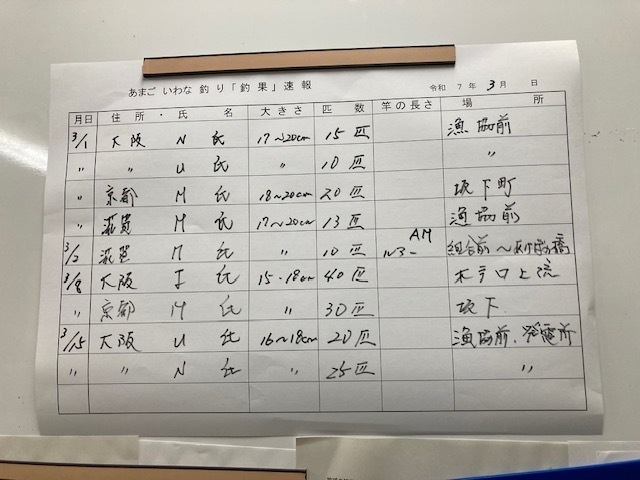 あまご いわな 釣り「釣果」速報 令和 7年 3月 日
月日 住所・氏 名 大きさ 匹 数 竿の長さ 場 所
3/1 大阪 N 氏 17~20cm 15匹 漁協前
〃 〃 U 氏 〃 10匹 〃
〃 京都 M 氏 18~20cm 20匹 坂下町
〃 滋賀 M 氏 17~20cm 13匹 漁協前
3/2 滋賀 M 氏 〃 10匹 AM 組合前~あけぼの橋
3/8 大阪 I 氏 15-18cm 40匹 木戸口上流
〃 京都 M 氏 〃 30匹 坂下
3/15 大阪 U 氏 16~18cm 20匹 漁協前、発電所
〃 〃 N 氏 〃 25匹 〃